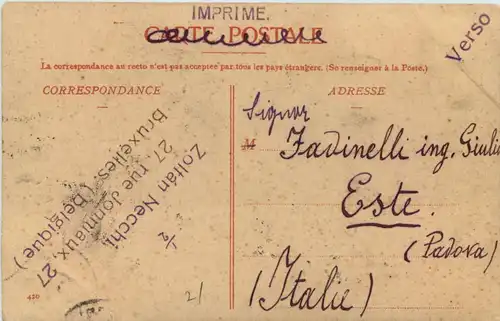 IMPRIME.
CARTE POSTALE
Verso
La correspondance au recto n'est pas acceptée par tous les pays étrangers. (Se renseigner à la Poste.)
CORRESPONDANCE
ADRESSE
Zoltán Necchi
27, rue Jonniaux, 27
Bruxelles. (Belgique)
Signor
M Fadinelli ing. Giulio
Este.
(Padova)
(Italie)
420
2/